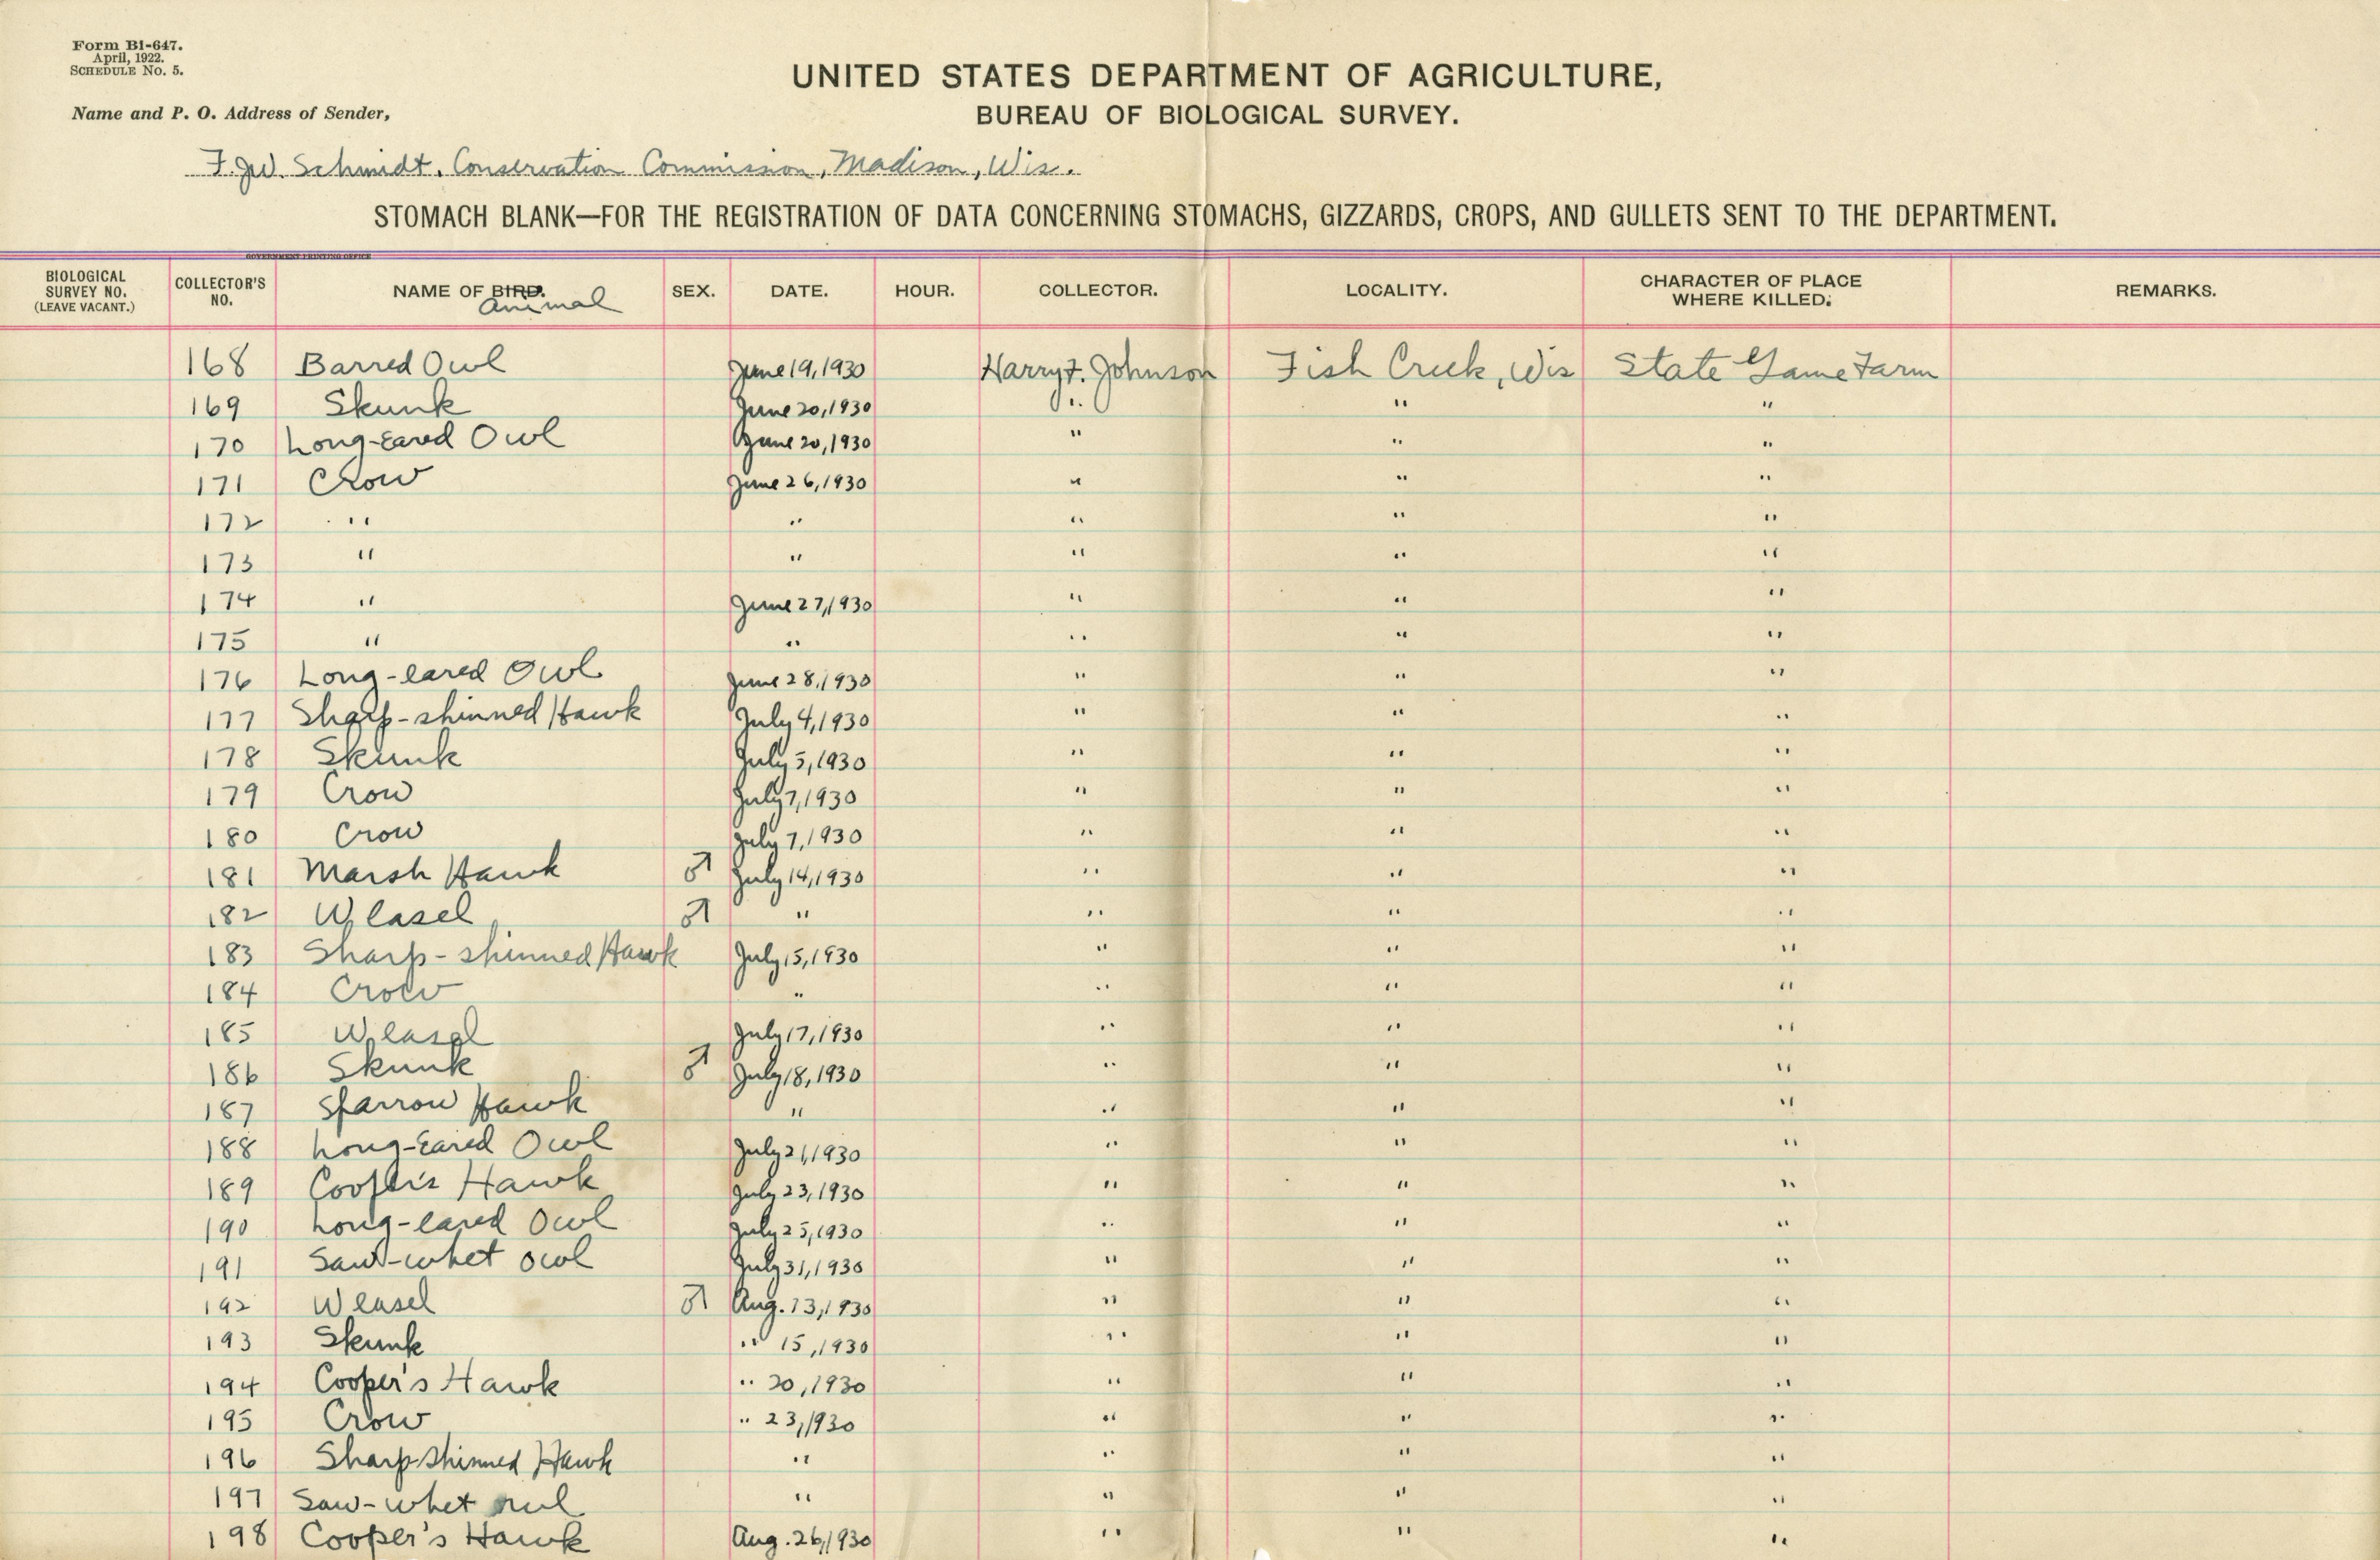 Form BI-647.
April, 1922.
SCHEDULE No. 5.
UNITED STATES DEPARTMENT OF AGRICULTURE,
BUREAU OF BIOLOGICAL SURVEY.
Name and P. O. Address of Sender,
F.J.W. Schmidt. Conservation Commission, Madison, Wis.
STOMACH BLANK—FOR THE REGISTRATION OF DATA CONCERNING STOMACHS, GIZZARDS, CROPS, AND GULLETS SENT TO THE DEPARTMENT.
GOVERNMENT PRINTING OFFICE
BIOLOGICAL SURVEY NO. (LEAVE VACANT.) COLLECTOR'S NO. NAME OF BIRD. Animal SEX. DATE. HOUR. COLLECTOR. LOCALITY. CHARACTER OF PLACE WHERE KILLED. REMARKS.
168 Barred Owl June 19, 1930 Harry F. Johnson Fish Creek, Wis State Game Farm
169 Skunk June 20, 1930 " " "
170 Long-eared Owl June 20, 1930 " " "
171 Crow June 26, 1930 " " "
172 " " " " "
173 " " " " "
174 " June 27, 1930 " " "
175 " " " " "
176 Long-eared Owl June 28, 1930 " " "
177 Sharp-shinned Hawk July 4, 1930 " " "
178 Skunk July 5, 1930 " " "
179 Crow July 7, 1930 " " "
180 Crow July 7, 1930 " " "
181 Marsh Hawk ♂ July 14, 1930 " " "
182 Weasel ♂ " " " "
183 Sharp-shinned Hawk July 15, 1930 " " "
184 Crow " " " "
185 Weasel July 17, 1930 " " "
186 Skunk ♂ July 18, 1930 " " "
187 Sparrow Hawk " " " "
188 Long-eared Owl July 21, 1930 " " "
189 Cooper's Hawk July 23, 1930 " " "
190 Long-eared Owl July 25, 1930 " " "
191 Saw-whet owl July 31, 1930 " " "
192 Weasel ♂ Aug. 13, 1930 " " "
193 Skunk " 15, 1930 " " "
194 Cooper's Hawk " 20, 1930 " " "
195 Crow " 23, 1930 " " "
196 Sharp-shinned Hawk " " " "
197 Saw-whet owl " " " "
198 Cooper's Hawk Aug. 26, 1930 " " "